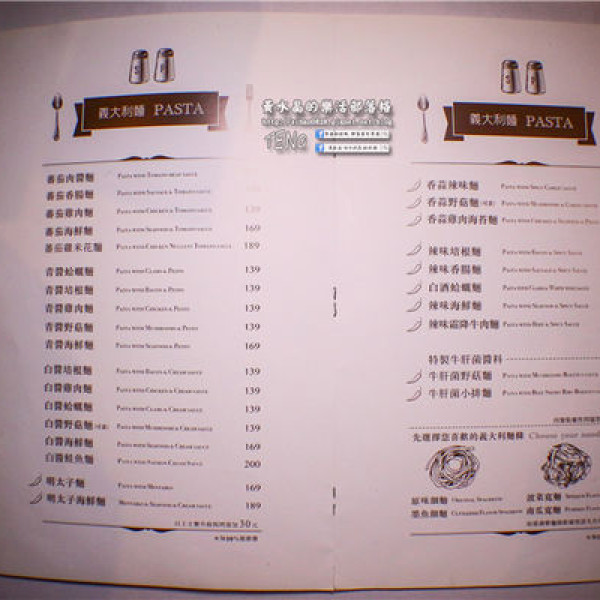 義大利麵 PASTA
蕃茄肉醬麵 PASTA WITH TOMATO MEAT SAUCE
蕃茄香腸麵 PASTA WITH SAUSAGE & TOMATO SAUCE
蕃茄雞肉麵 PASTA WITH CHICKEN & TOMATO SAUCE 139
蕃茄海鮮麵 PASTA WITH SEAFOOD & TOMATO SAUCE 169
蕃茄雞米花麵 PASTA WITH CHICKEN NUGGETS TOMATO SAUCE 189
青醬蛤蠣麵 PASTA WITH CLAMS & PESTO 139
青醬培根麵 PASTA WITH BACON & PESTO 139
青醬雞肉麵 PASTA WITH CHICKEN & PESTO 139
青醬野菇麵 PASTA WITH MUSHROOMS & PESTO 139
青醬海鮮麵 PASTA WITH SEAFOOD & PESTO 169
白醬培根麵 PASTA WITH BACON & CREAM SAUCE 139
白醬雞肉麵 PASTA WITH CHICKEN & CREAM SAUCE 139
白醬蛤蠣麵 PASTA WITH CLAMS & CREAM SAUCE 139
白醬野菇麵(可素) PASTA WITH MUSHROOMS & CREAM SAUCE 139
白醬海鮮麵 PASTA WITH SEAFOOD & CREAM SAUCE 169
白醬鮭魚麵 PASTA WITH SALMON CREAM SAUCE 200
明太子麵 PASTA WITH MENTAIKO 169
明太子海鮮麵 MENTAIKO & SEAFOOD & CREAM SAUCE 189
30元
黃水晶的樂活部落格
TENG
義大利麵 PASTA
香蒜辣味麵 PASTA WITH SPICY GARLIC SAUCE
香蒜野菇麵(可素) PASTA WITH MUSHROOMS & GARLIC SAUCE
香蒜雞肉海苔麵
辣味培根麵 PASTA WITH BACON & SPICY SAUCE
辣味香腸麵 PASTA WITH SAUSAGE & SPICY SAUCE
白酒蛤蠣麵
辣味海鮮麵 PASTA WITH SEAFOOD & SPICY SAUCE
辣味霜降牛肉麵 PASTA WITH BEEF & SPICY SAUCE
特製牛肝菌醬料
牛肝菌野菇麵
牛肝菌小排麵
先選擇您喜歡的義大利麵條 Choose your
原味細麵 ORIGINAL SPAGHETTI 菠菜寬麵
墨魚細麵 南瓜寬麵